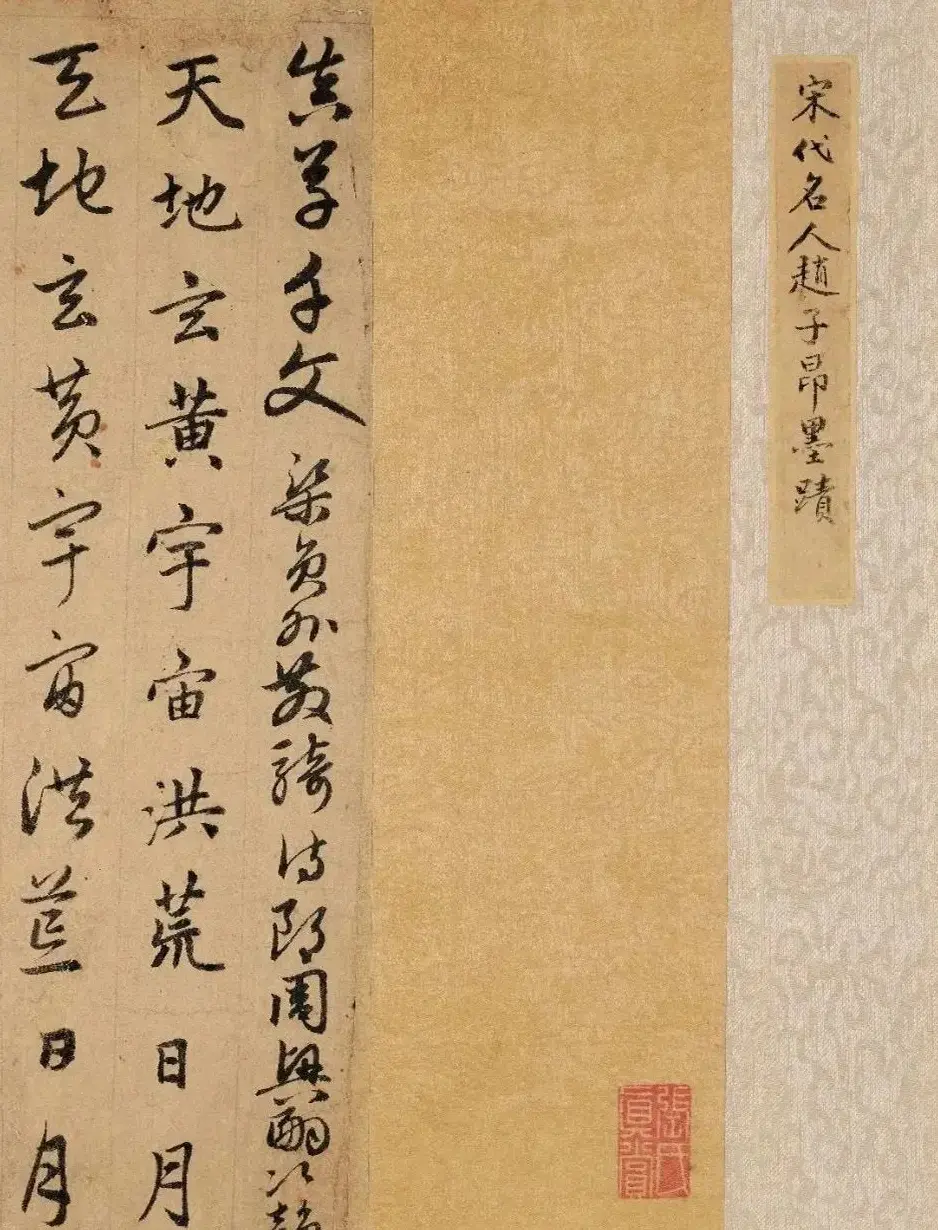 宋代名人趙子昂墨蹟
真草千文 梁員外散騎侍郎周興嗣次韻
天地玄黃宇宙洪荒日月
天地玄黃宇宙洪荒日月